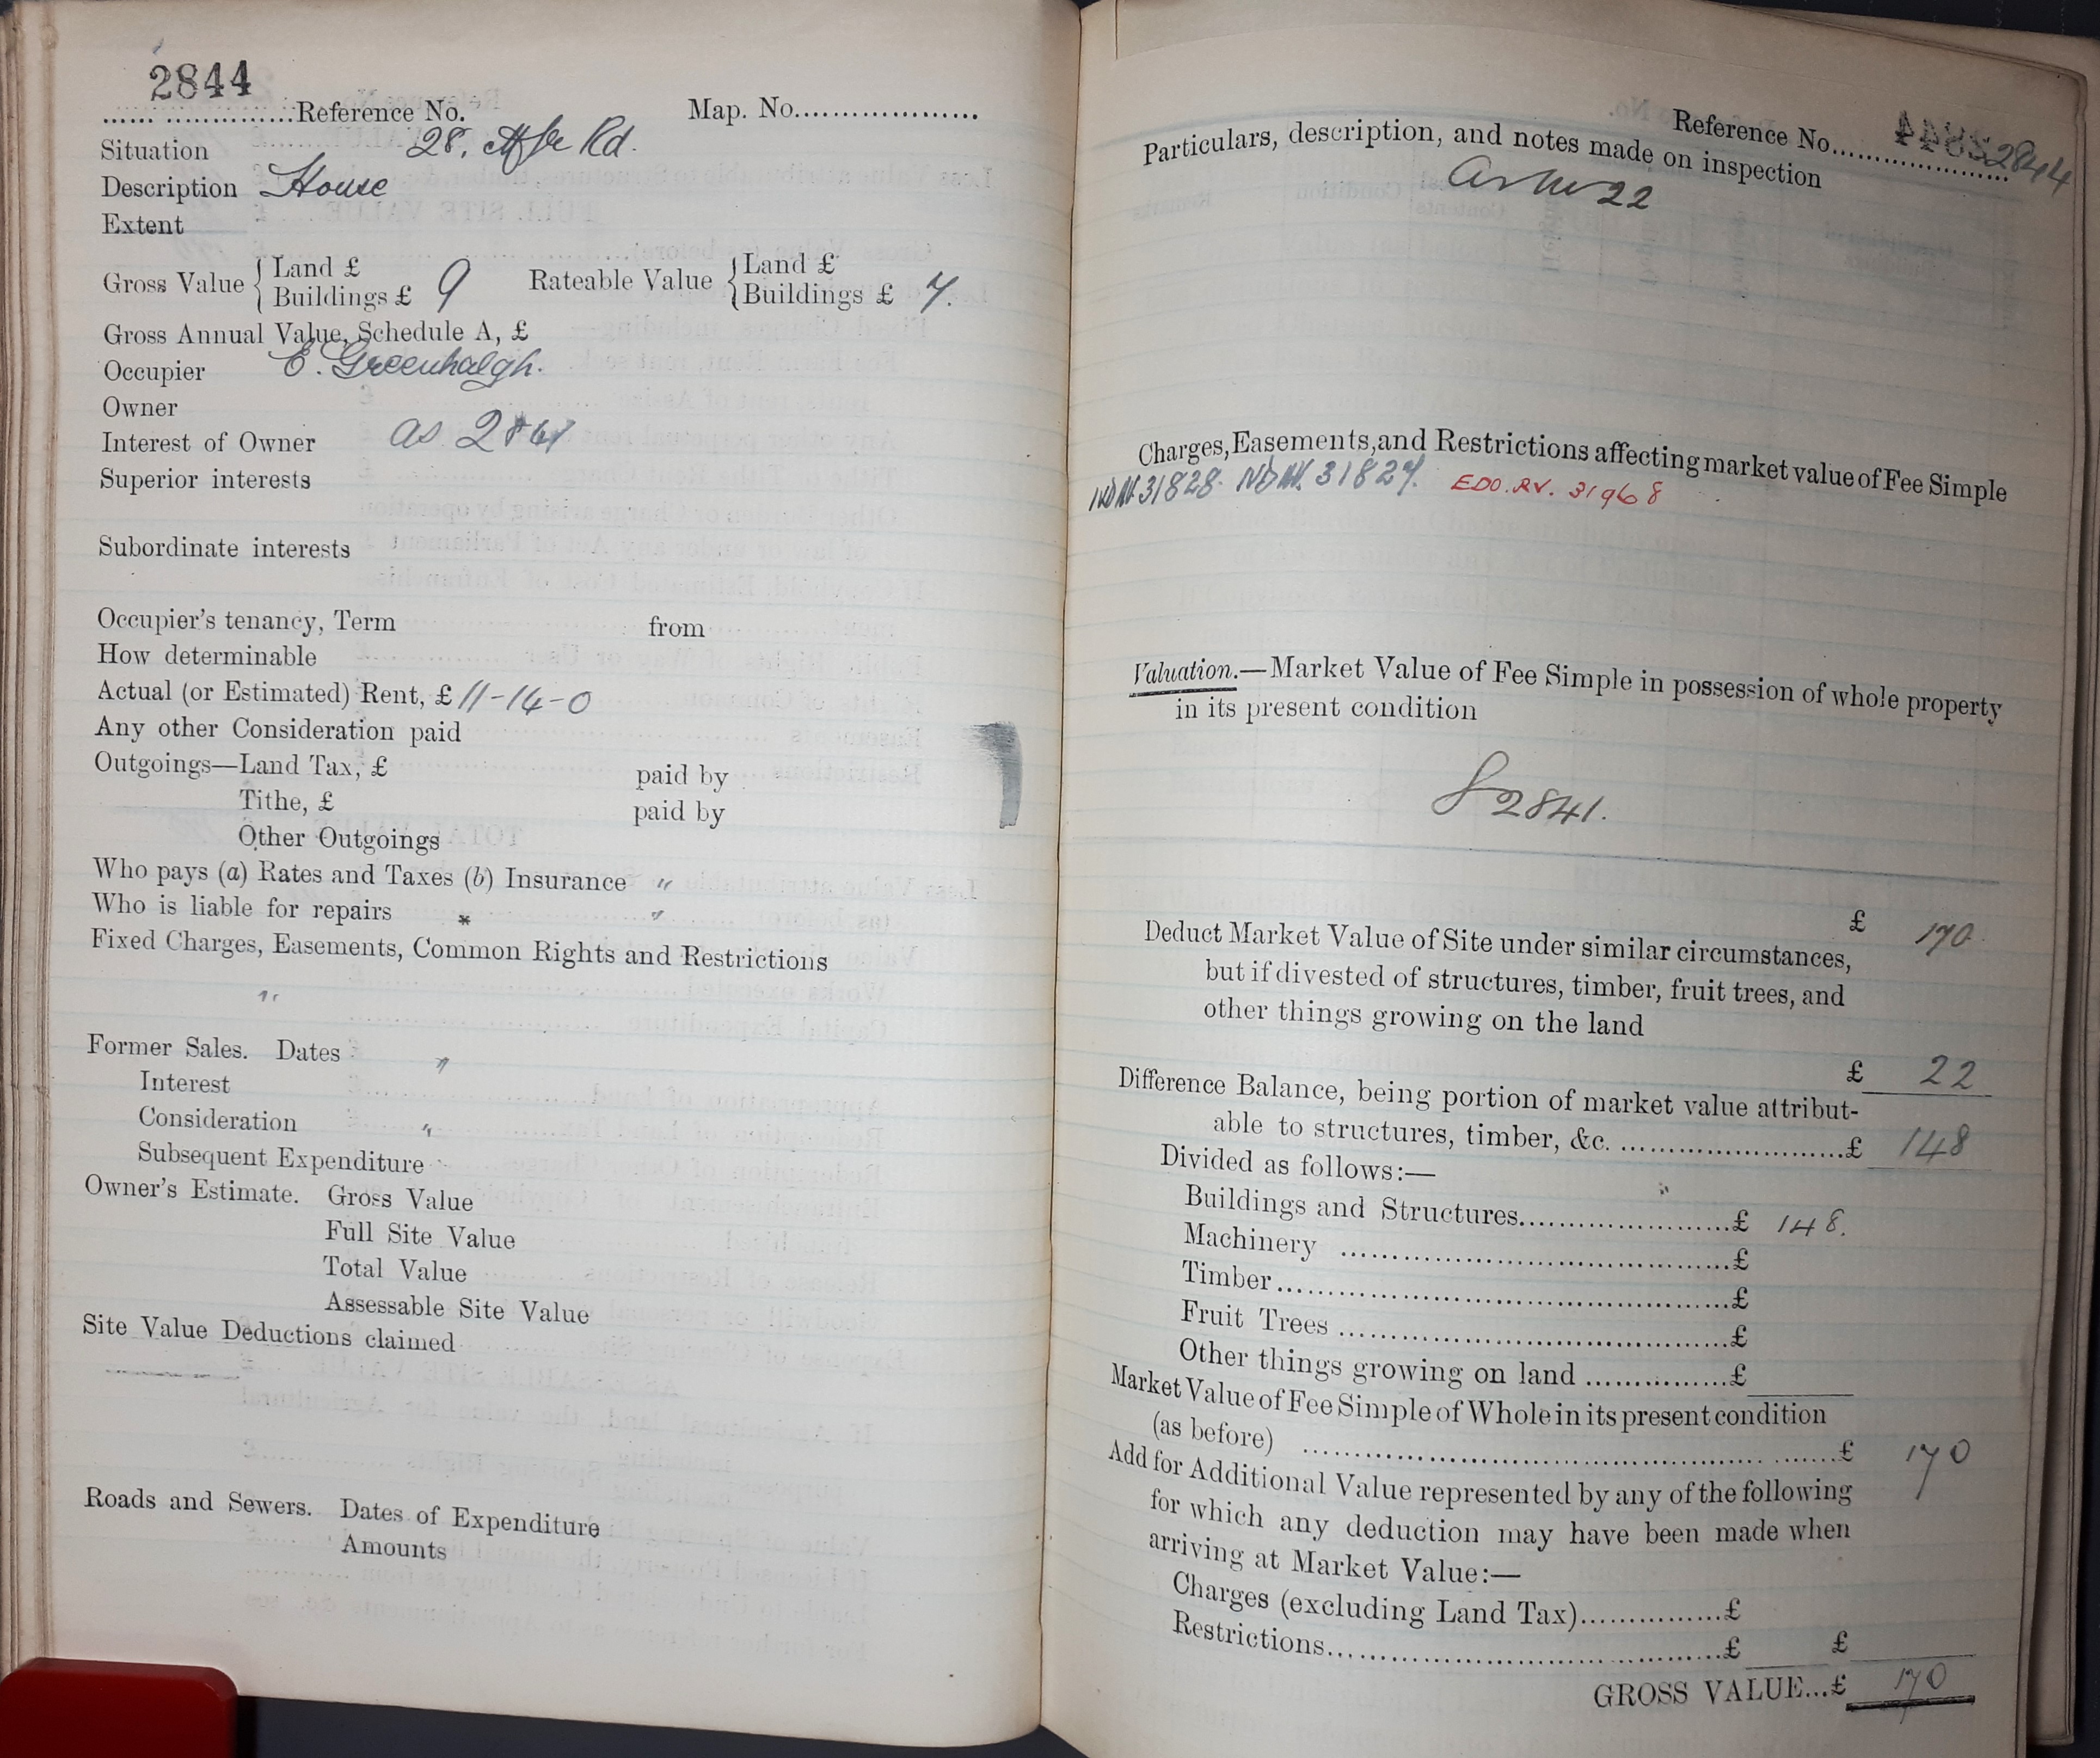 2844
Reference No. Map. No.
Situation 28, Rd.
Description House
Extent
Gross Value { Land £
Buildings £ 9
Rateable Value { Land £
Buildings £ 7.
Gross Annual Value, Schedule A, £
Occupier E. Greenhalgh.
Owner
Interest of Owner as
Superior interests
Subordinate interests
Occupier's tenancy, Term from
How determinable
Actual (or Estimated) Rent, £ 11-14-0
Any other Consideration paid
Outgoings—Land Tax, £ paid by
Tithe, £ paid by
Other Outgoings
Who pays (a) Rates and Taxes (b) Insurance "
Who is liable for repairs "
Fixed Charges, Easements, Common Rights and Restrictions
"
Former Sales. Dates "
Interest
Consideration "
Subsequent Expenditure
Owner's Estimate. Gross Value
Full Site Value
Total Value
Assessable Site Value
Site Value Deductions claimed
Roads and Sewers. Dates of Expenditure
Amounts
Reference No. 2844
Particulars, description, and notes made on inspection
22
Charges, Easements, and Restrictions affecting market value of Fee Simple
31828. 31827. EDO. RV. 31968
Valuation.—Market Value of Fee Simple in possession of whole property
in its present condition
2841.
£ 170
Deduct Market Value of Site under similar circumstances,
but if divested of structures, timber, fruit trees, and
other things growing on the land
£ 22
Difference Balance, being portion of market value attribut-
able to structures, timber, &c. £ 148
Divided as follows:—
Buildings and Structures £ 148.
Machinery £
Timber £
Fruit Trees £
Other things growing on land £
Market Value of Fee Simple of Whole in its present condition
(as before) £ 170
Add for Additional Value represented by any of the following
for which any deduction may have been made when
arriving at Market Value:—
Charges (excluding Land Tax) £
Restrictions £ £
GROSS VALUE...£ 170